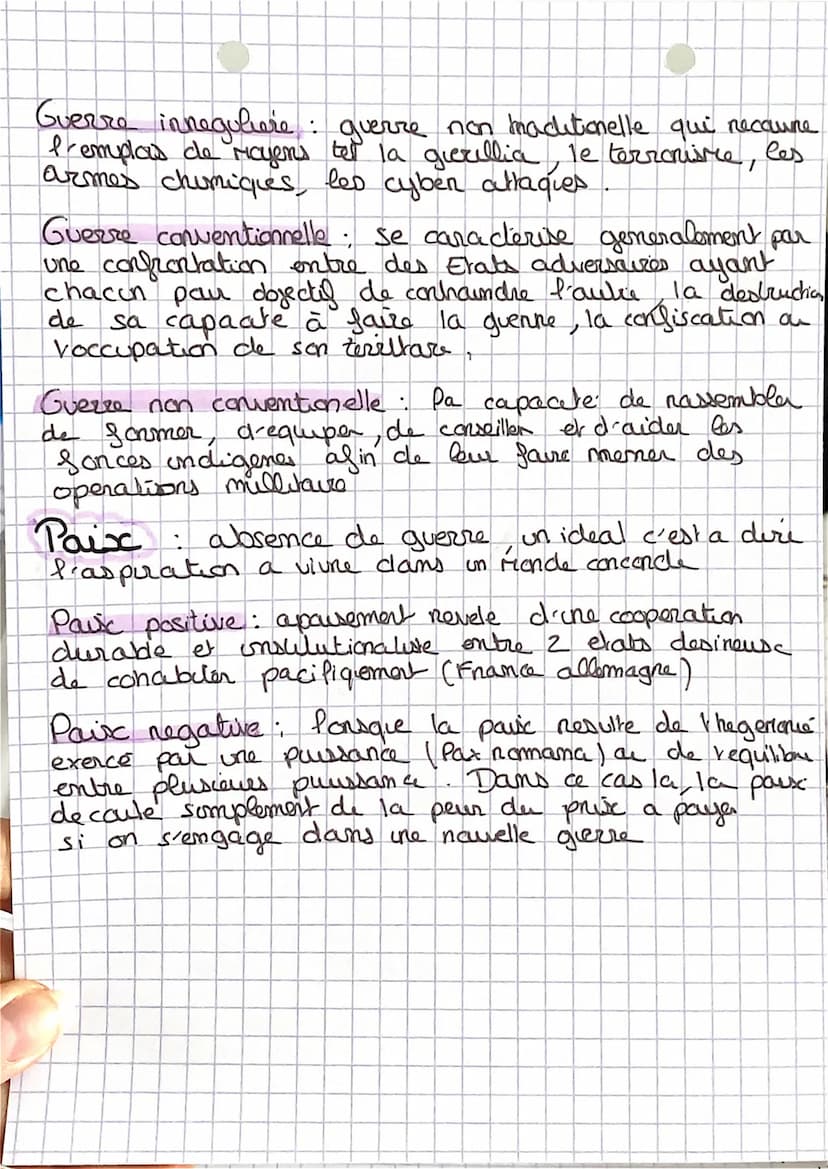 Guerre irreguliere : guerre non traditionelle qui recouvre
l'emplois de moyens tel la guerillia, le terrorisme, les
armes chimiques, les cyber attaques.
Guerre conventionnelle : se caractérise generalement par
une confrontation entre des Etats adversaires ayant
chacun pour objectif de contraindre l'autre, la destruction
de sa capacite à faire la guerre, la confiscation ou
l'occupation de son territoire.
Guerre non conventionelle : la capacite de rassembler
de former, d'equiper, de conseiller et d'aider les
forces indigenes afin de leur faire mener des
operations millitaire
Paix : absence de guerre, un ideal c'est a dire
l'aspiration a vivre dans un monde concorde
Paix positive : apaisement revele d'une cooperation
durable et institutionalise entre 2 etats desireuse
de cohabiter pacifiquement (France allemagne)
Paix negative : lorsque la paix resulte de l'hegemonie
exercé par une puissance (Pax romana) ou de l'equilibre
entre plusieurs puissance. Dans ce cas la, la paix
decoule simplement de la peur du prix a payer
si on s'engage dans une nouvelle guerre